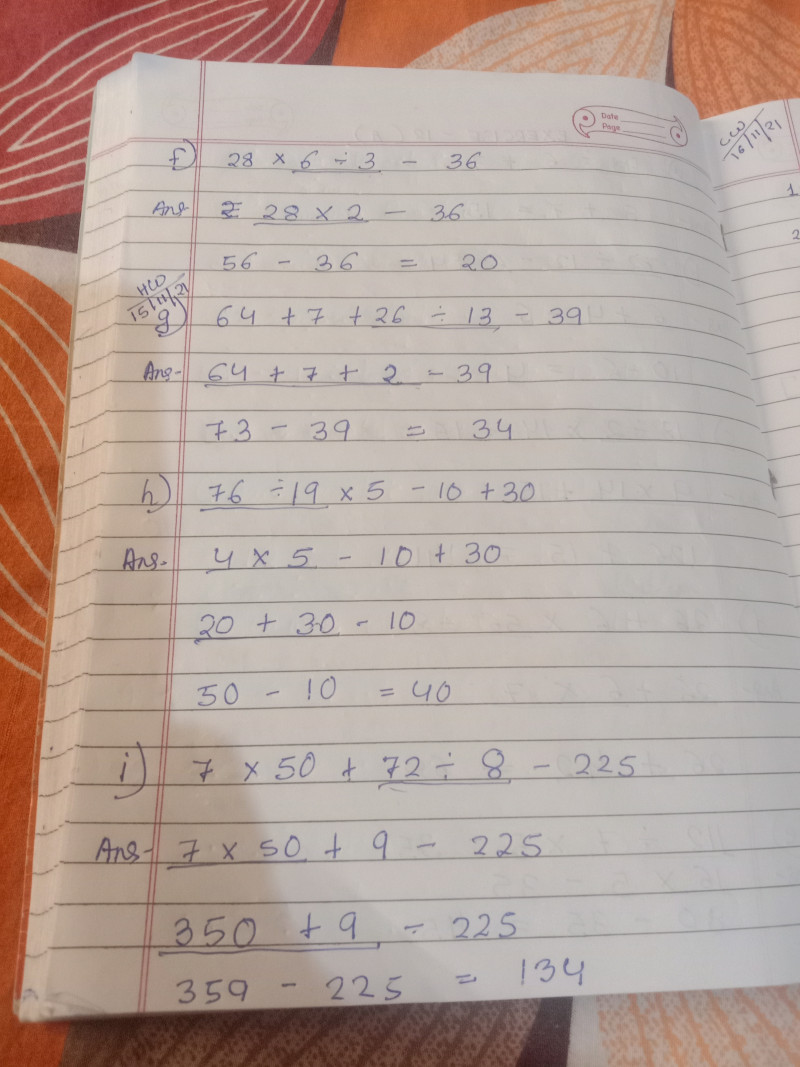 Date
Page
f) 28 × 6 ÷ 3 - 36
Ans = 28 × 2 - 36
56 - 36 = 20
HW
15/11/21
g) 64 + 7 + 26 ÷ 13 - 39
Ans- 64 + 7 + 2 - 39
73 - 39 = 34
h) 76 ÷ 19 × 5 - 10 + 30
Ans- 4 × 5 - 10 + 30
20 + 30 - 10
50 - 10 = 40
i) 7 × 50 + 72 ÷ 8 - 225
Ans- 7 × 50 + 9 - 225
350 + 9 ÷ 225
359 - 225 = 134
CW
16/11/21
1
2